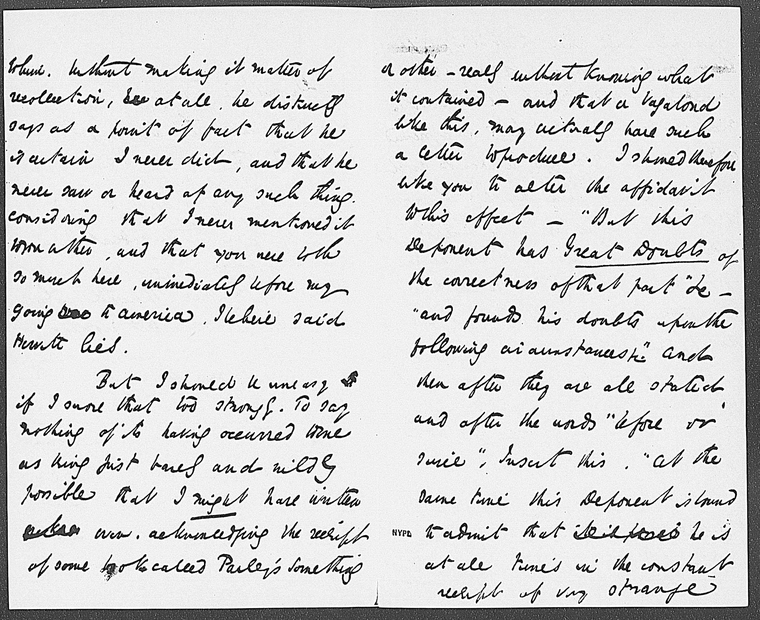 whim. Without making it matter of
recollection, at all, he distinctly
says as a point of fact that he
is certain I never did, and that he
never saw or heard of any such thing.
Considering that I never mentioned it
to you after, and that you were both
so much here, immediately before my
going to America, I believe said
Hewitt lies.
But I should be uneasy
if I swore that too strongly. To say
nothing of its having occurred to me
as being just barely and mildly
possible that I might have written
even, acknowledging the receipt
of some book called Parley's Something
or other – really without knowing what
it contained – and that a Vagabond
like this, may actually have such
a letter to produce. I should therefore
like you to alter the affidavit
to this effect – "But this
Deponent has Great Doubts of
the correctness of that part" &c –
"and founds his doubts upon the
following circumstances:" and
then after they are all stated
and after the words "before or
since", Insert this. "At the
same time this Deponent is bound
NYPL
to admit that he is
at all times in the constant
receipt of very strange